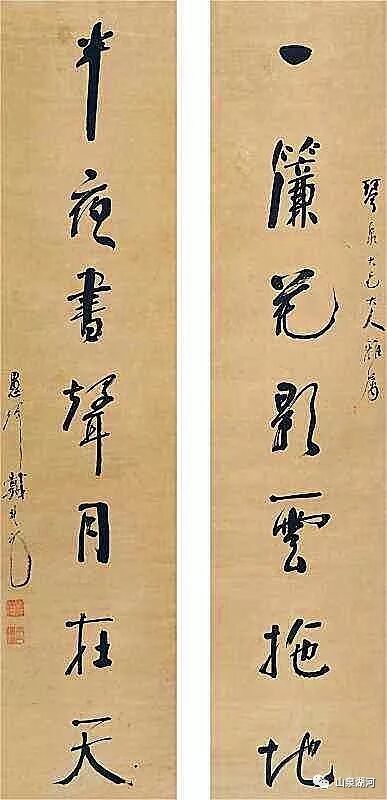 琴泉大兄大人雅屬
一簾花影雲拖地
半夜書聲月在天
愚弟戴
山泉湖河